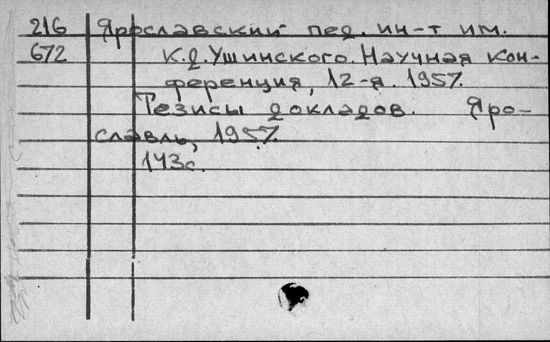 216 Ярославский пед. ин-т им.
672 К.Д.Ушинского. Научная кон-
ференция, 12-я. 1957.
Тезисы докладов. Яро-
славль, 1957.
143с.